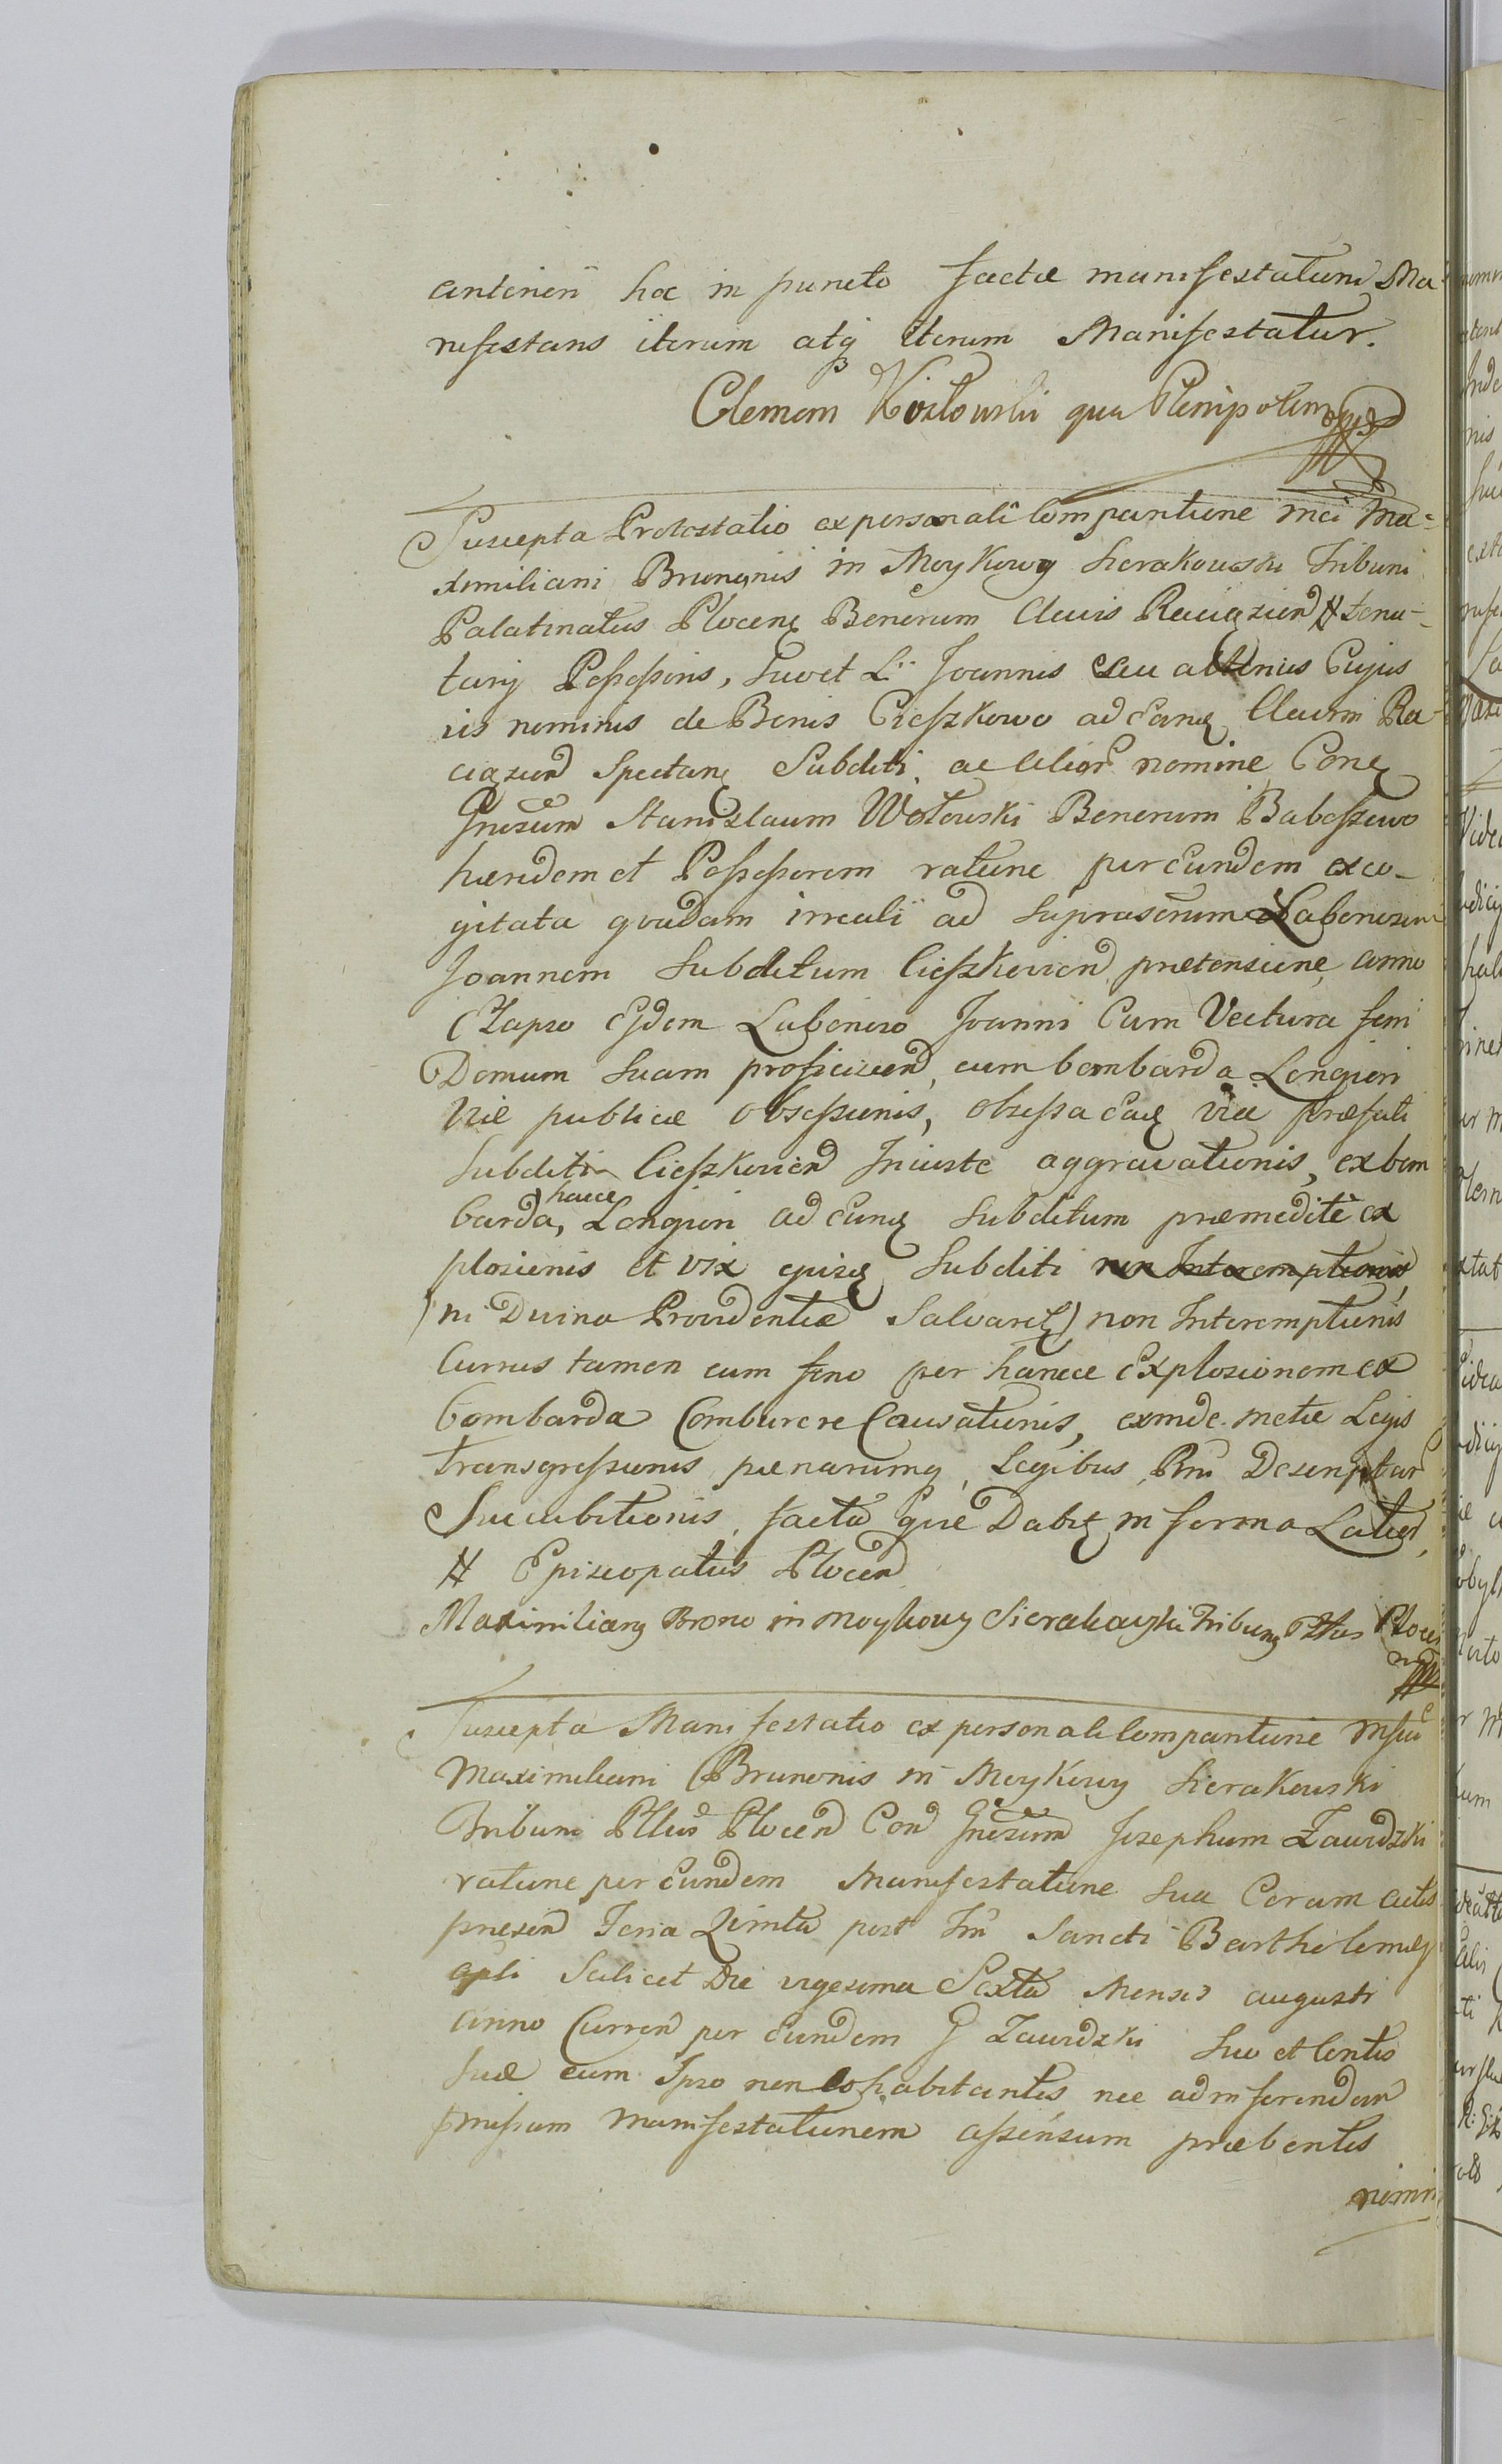 anteriori hoc in puncto factæ manifestationi Ma-
nifestans iterum atq iterum Manifestatur.
Clemens Kozłowski qua Plenipotens
Suscepta Protestatio ex personali Comparitione Mci Ma=
ximiliani Brunonis in Moykowy Sierakowski Tribuni
Palatinatus Plocens Bonorum Clavis Raciązien # tenu-
tarij Possessoris, suo et L Joannis seu alterius Cujus
vis nominis de Bonis Cieszkowo ad eand Clavim Ra-
ciązien Spectan Subditi ac alior nomine Con
Gnesum Stanislaum Wołowski Bonorum Baboszewo
hæredem et Possessorem ratione per eundem exco-
gitata quadam irreali ad suprascrum Laboriosum
Joannem Subditum Cieszkovien prætensione, anno
Elapso Ejdem Laborioso Joanni Cum Vectura feni
Domum suam proficiscen, cum bombarda Longiori
viæ publicæ obsessionis, obsessa eaq via præfati
Subditi Cieszkovien Injuste aggravationis, ex bom
barda, hacce Longiori ad eund Subditum præmedite ex
plosionis et vix ejusd Subditi non Interemptionis
(ni Divina Providentia Salvaret) non Interemptionis
Currus tamen cum feno per hancce Explosionem ex
bombarda Comburere Causationis, exinde metæ Legis
transgressionis pœnarumq Legibus Rni Descriptar
Succubitionis, facta quæ Dabit in forma Latiori
# Episcopatus Plocen
Maximilian Bruno in Moykowy Sierakowski Tribun Pltus Plocen
Suscepta Manifestatio ex personali Comparitione Mfici
Maximiliani Brunonis in Moykowy Sierakowski
Tribuni Pltus Plocen Con Gnesum Josephum Zawidzki
ratione per Eundem Manifestatione sua Coram actis
præsen Feria Quinta post Fm Sancti Bartholomæj
Apli Scilicet Die vigesima Sexta Mensis augusti
anno Curren per Eundem G Zawidzki suo et Contis
suæ cum Ipso non Cohabitantis nec ad inferendam
pmissam Manifestationem assensum præbentis
nomin